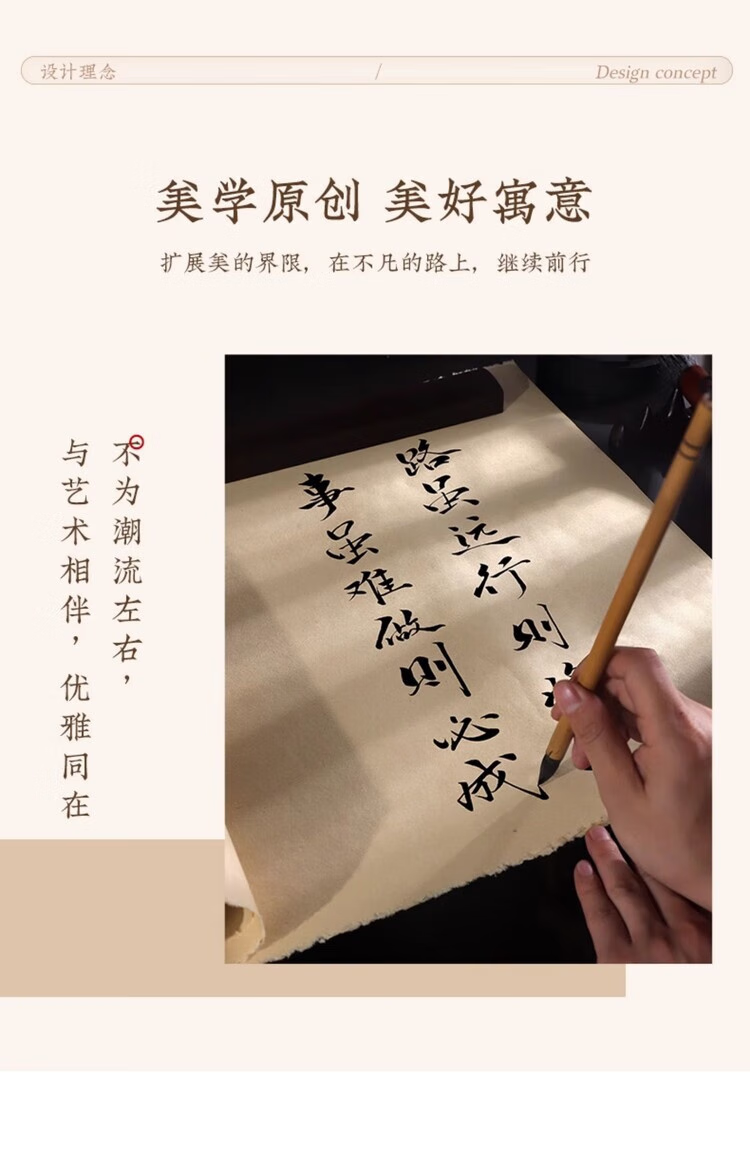 设计理念 / Design concept
美学原创 美好寓意
扩展美的界限, 在不凡的路上, 继续前行
不为潮流左右，
与艺术相伴，优雅同在
路虽远行则
事虽难做则必成